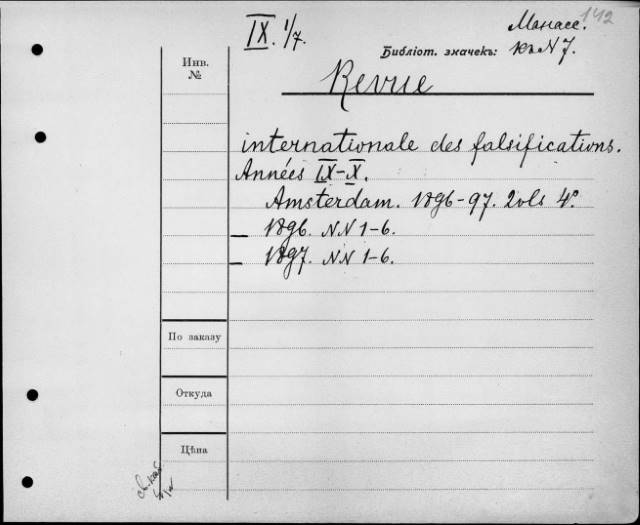 142
IX. 1/7.
Манасс.
Библіот. значекъ: къ N 7.
Инв.
№
Revue
internationale des falsifications.
Années IX-X.
Amsterdam. 1896-97. 2 vols 4º.
— 1896. NN 1-6.
— 1897. NN 1-6.
По заказу
Откуда
Цѣна